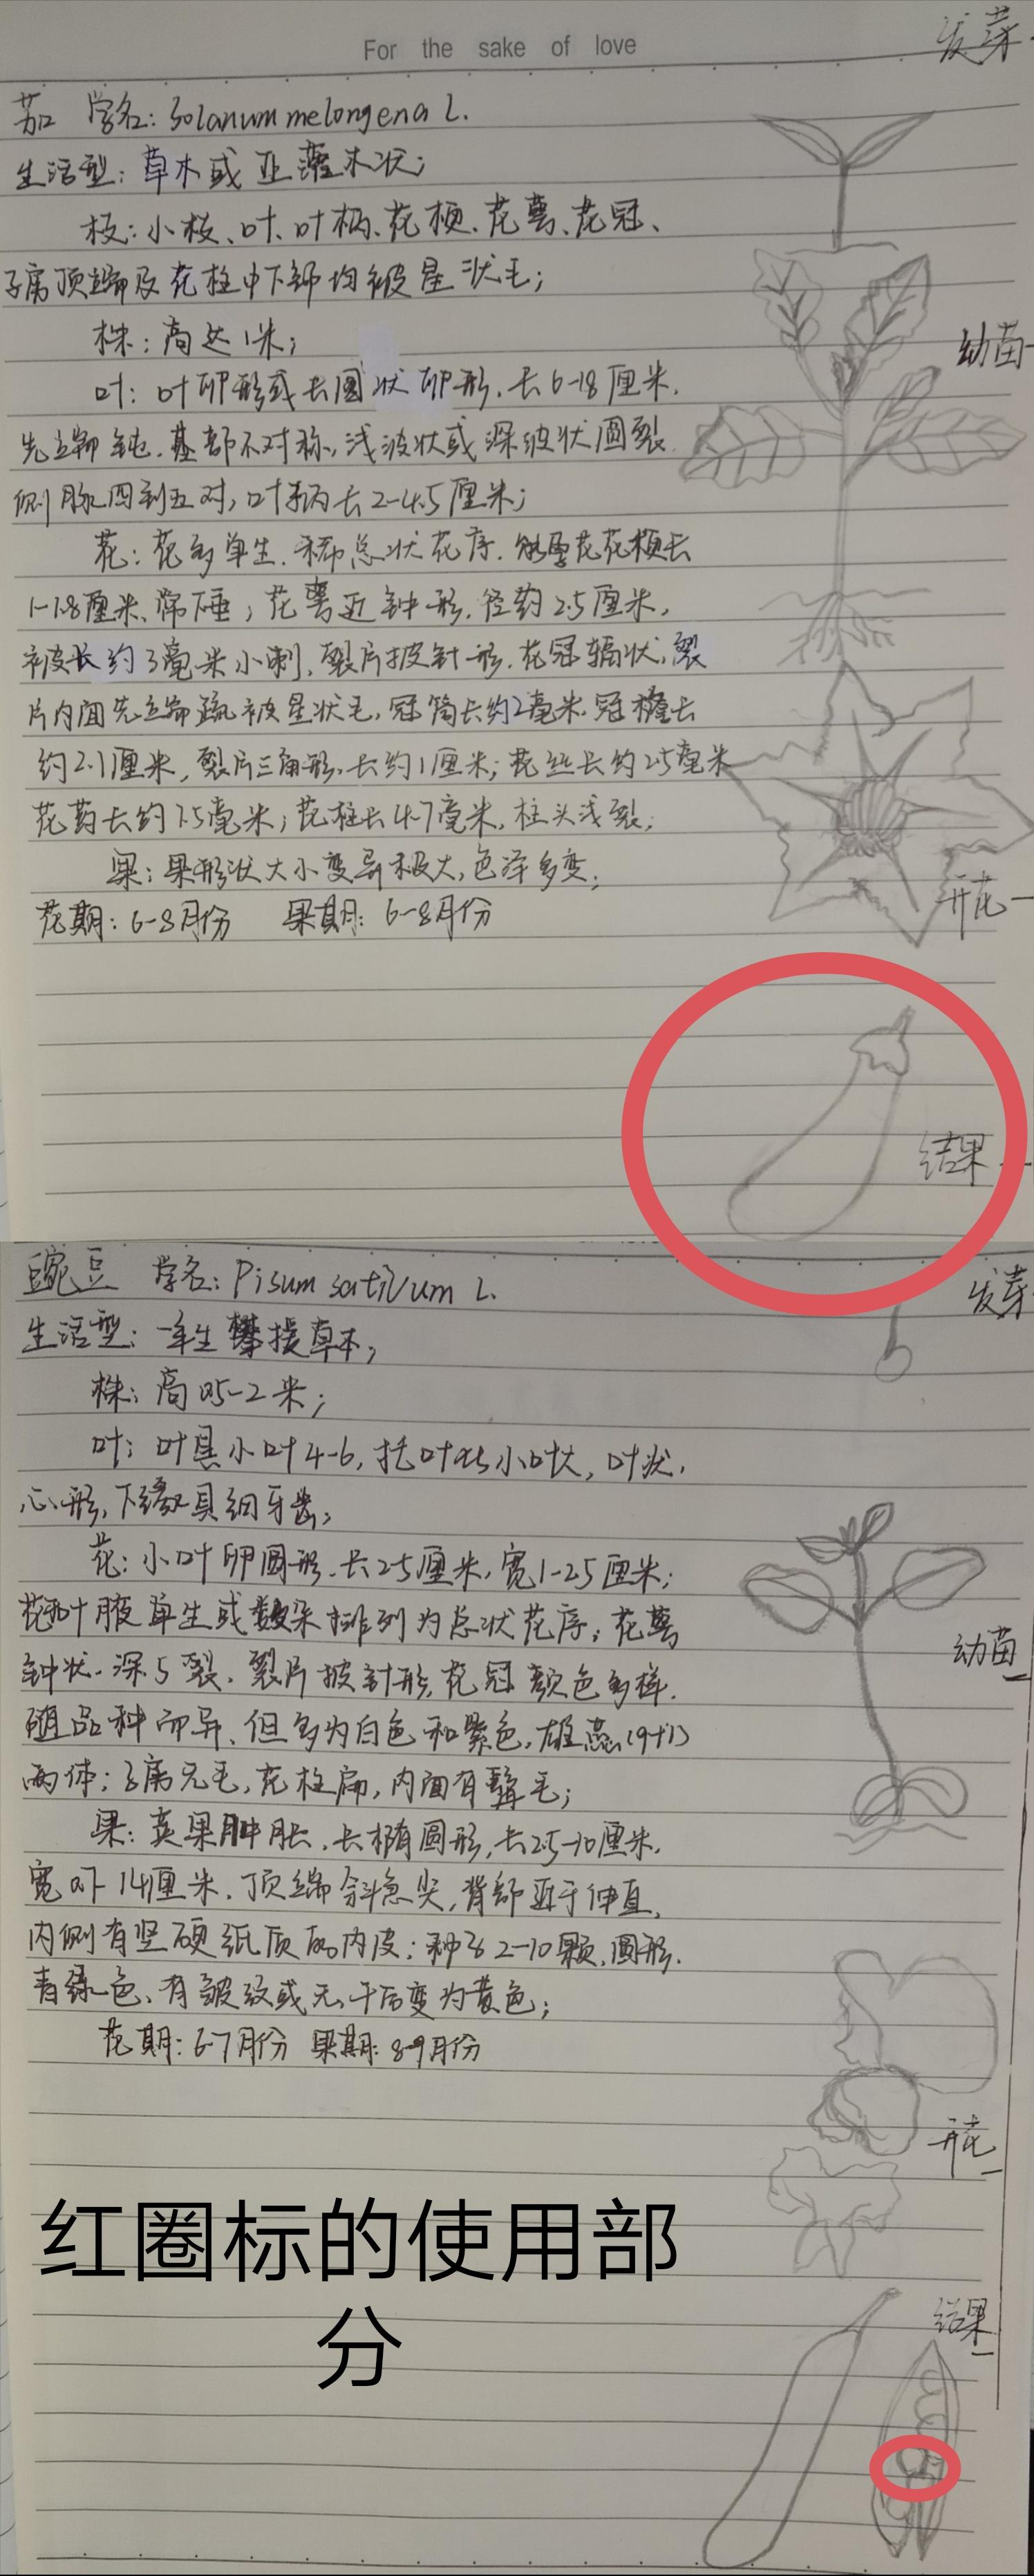 For the sake of love
发芽
茄 学名: Solanum melongena L.
生活型: 草木或亚灌木状;
枝: 小枝、叶、叶柄、花梗、花萼、花冠、
子房顶端及花柱中下部均被星状毛;
株: 高达1米;
叶: 叶卵形或长圆状卵形, 长6-18厘米,
幼苗
先端钝, 基部不对称, 浅波状或深波状圆裂
侧脉四到五对, 叶柄长2-4.5厘米;
花: 花多单生, 稀总状花序, 能孕花花梗长
1-1.8厘米、常下垂; 花萼近钟形, 径约2.5厘米,
被长约3毫米小刺, 裂片披针形, 花冠辐状, 裂
片内面先端疏被星状毛, 冠筒长约2毫米, 冠檐长
约2.1厘米, 裂片三角形, 长约1厘米; 花丝长约2.5毫米
花药长约7.5毫米; 花柱长4-7毫米, 柱头浅裂;
果: 果形状大小变异极大, 色泽多变;
开花
花期: 6-8月份 果期: 6-8月份
结果
豌豆 学名: Pisum sativum L.
发芽
生活型: 一年生攀援草本;
株: 高0.5-2米;
叶: 叶具小叶4-6, 托叶比小叶大, 叶状,
心形, 下缘具细牙齿;
花: 小叶卵圆形, 长2-5厘米, 宽1-2.5厘米;
花叶腋单生或数朵排列为总状花序; 花萼
幼苗
钟状, 深5裂, 裂片披针形, 花冠颜色多样,
随品种而异, 但多为白色和紫色, 雄蕊(9+1)
两体; 子房无毛, 花柱扁, 内面有髯毛;
果: 荚果肿胀, 长椭圆形, 长2.5-10厘米,
宽0.7-14厘米, 顶端斜急尖, 背部近于伸直,
内侧有坚硬纸质的内皮; 种子2-10颗, 圆形,
青绿色, 有皱纹或无, 干后变为黄色;
花期: 6-7月份 果期: 8-9月份
开花
红圈标的使用部
分
结果